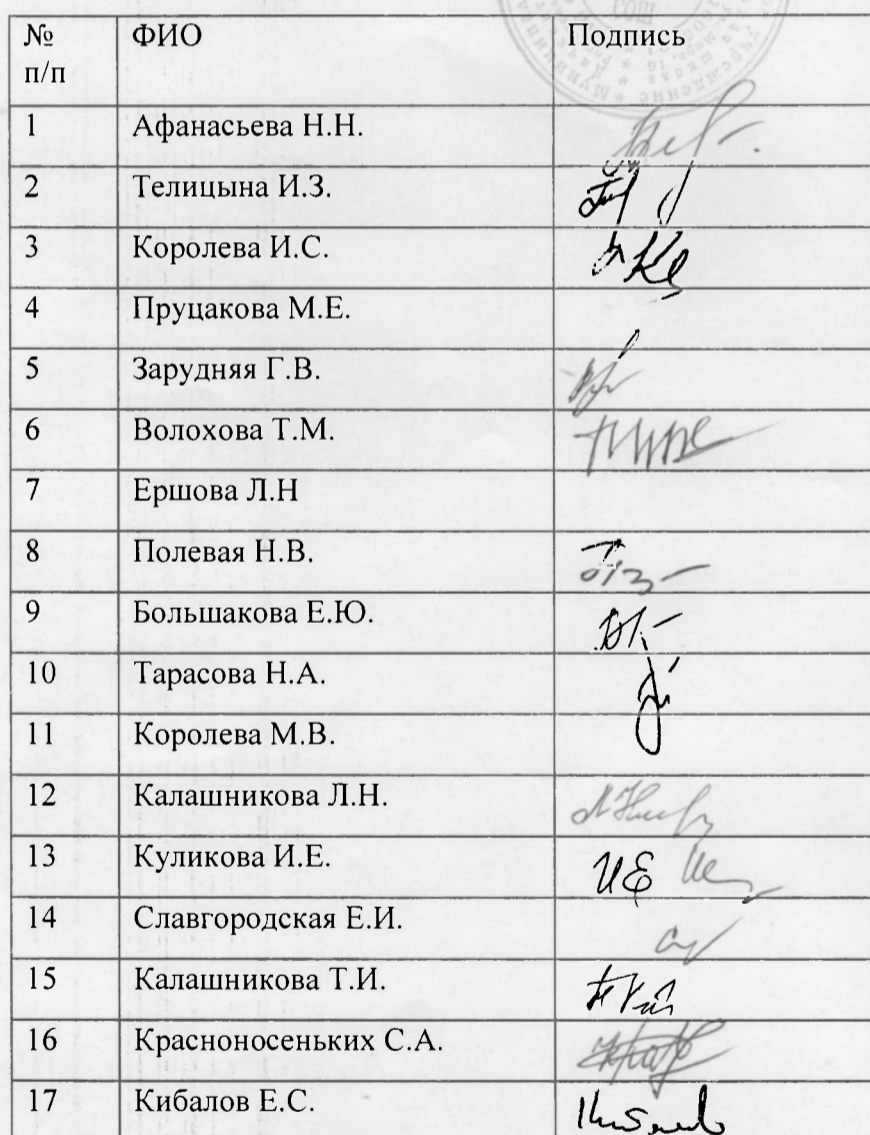 СОШ
№ ФИО Подпись
п/п
1 Афанасьева Н.Н.
2 Телицына И.З.
3 Королева И.С.
4 Пруцакова М.Е.
5 Зарудняя Г.В.
6 Волохова Т.М.
7 Ершова Л.Н
8 Полевая Н.В.
9 Большакова Е.Ю.
10 Тарасова Н.А.
11 Королева М.В.
12 Калашникова Л.Н.
13 Куликова И.Е.
14 Славгородская Е.И.
15 Калашникова Т.И.
16 Красноносеньких С.А.
17 Кибалов Е.С.